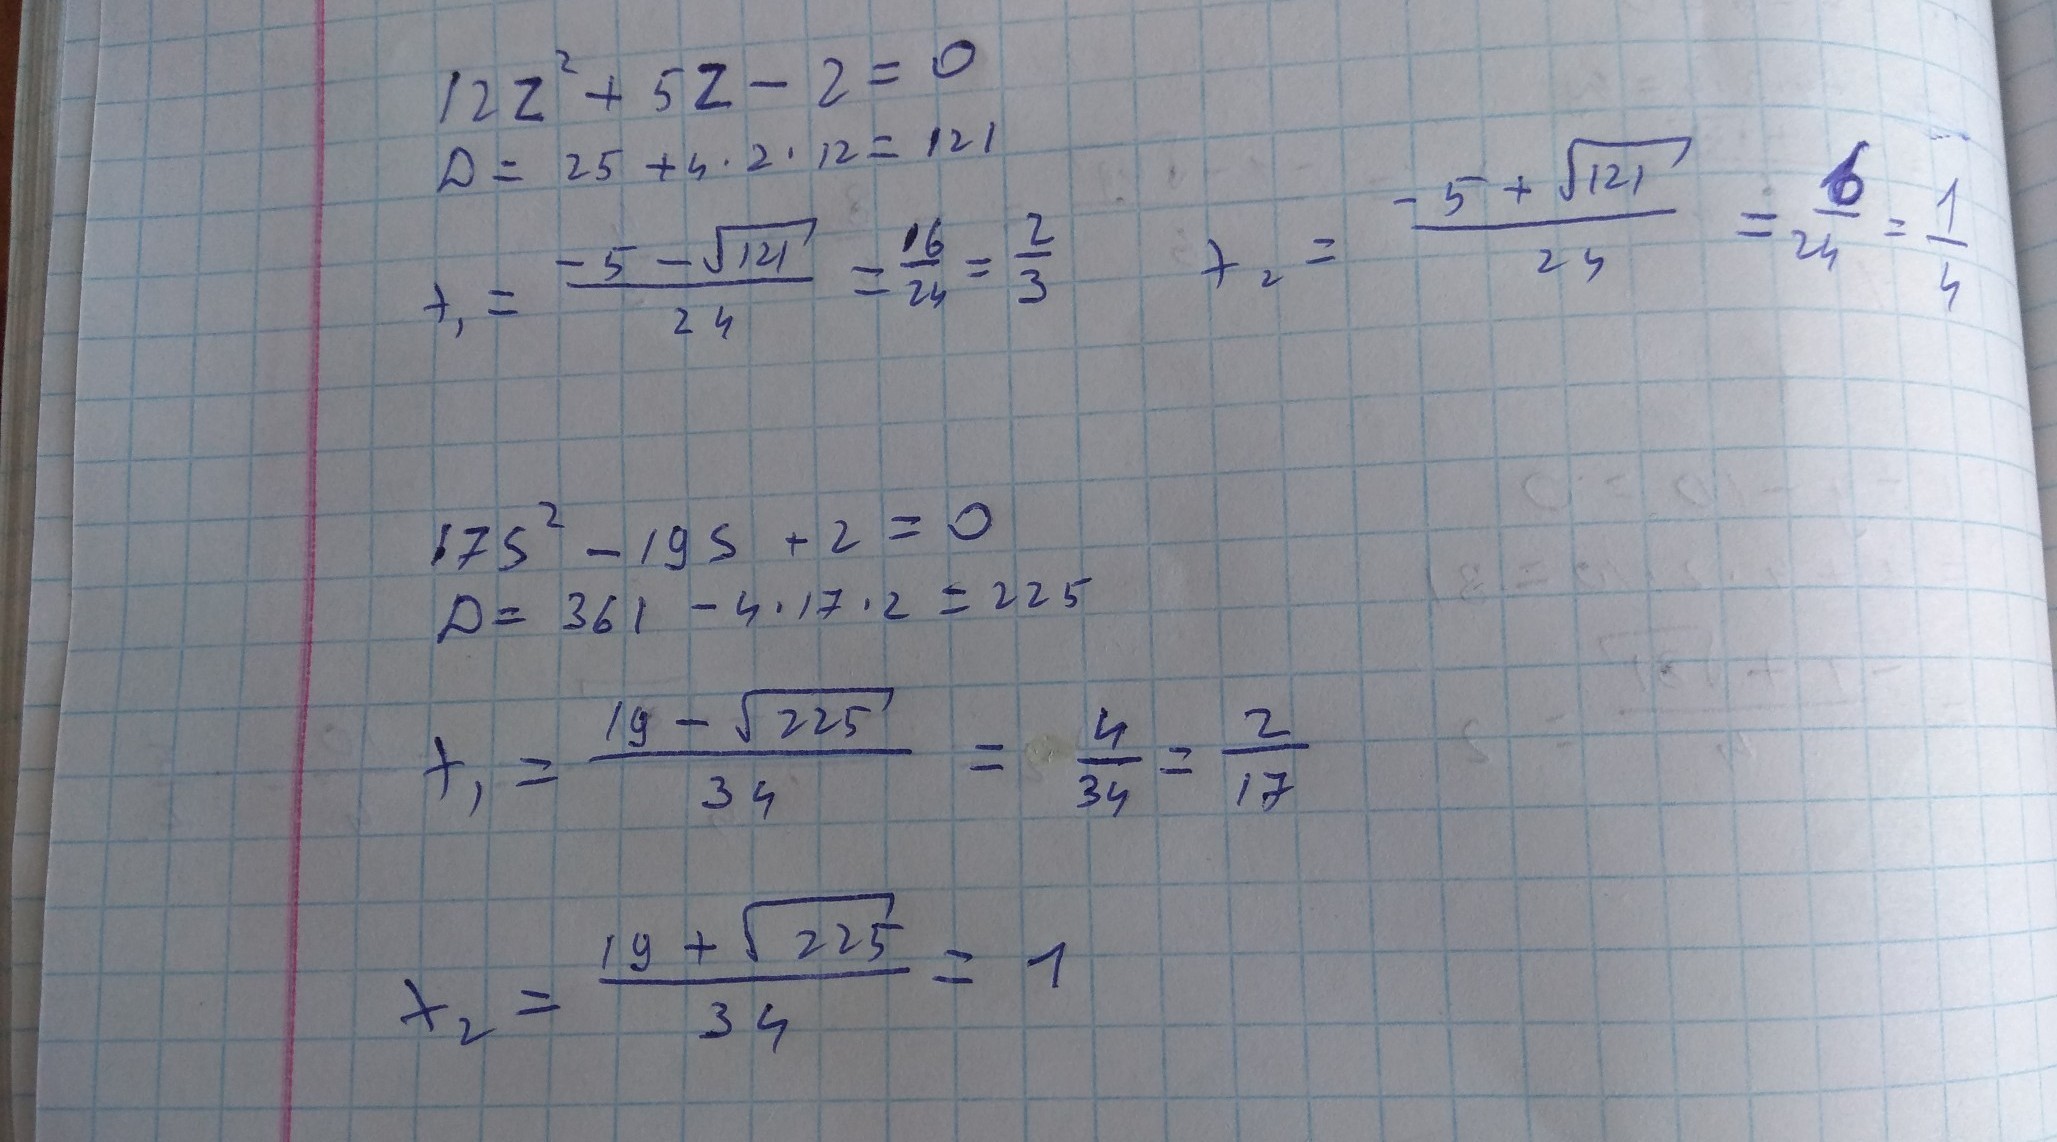 12z² + 5z - 2 = 0
D = 25 + 4 · 2 · 12 = 121
x₁ = (-5 - √121)/24 = 16/24 = 2/3
x₂ = (-5 + √121)/24 = 6/24 = 1/4
17s² - 19s + 2 = 0
D = 361 - 4 · 17 · 2 = 225
x₁ = (19 - √225)/34 = 4/34 = 2/17
x₂ = (19 + √225)/34 = 1